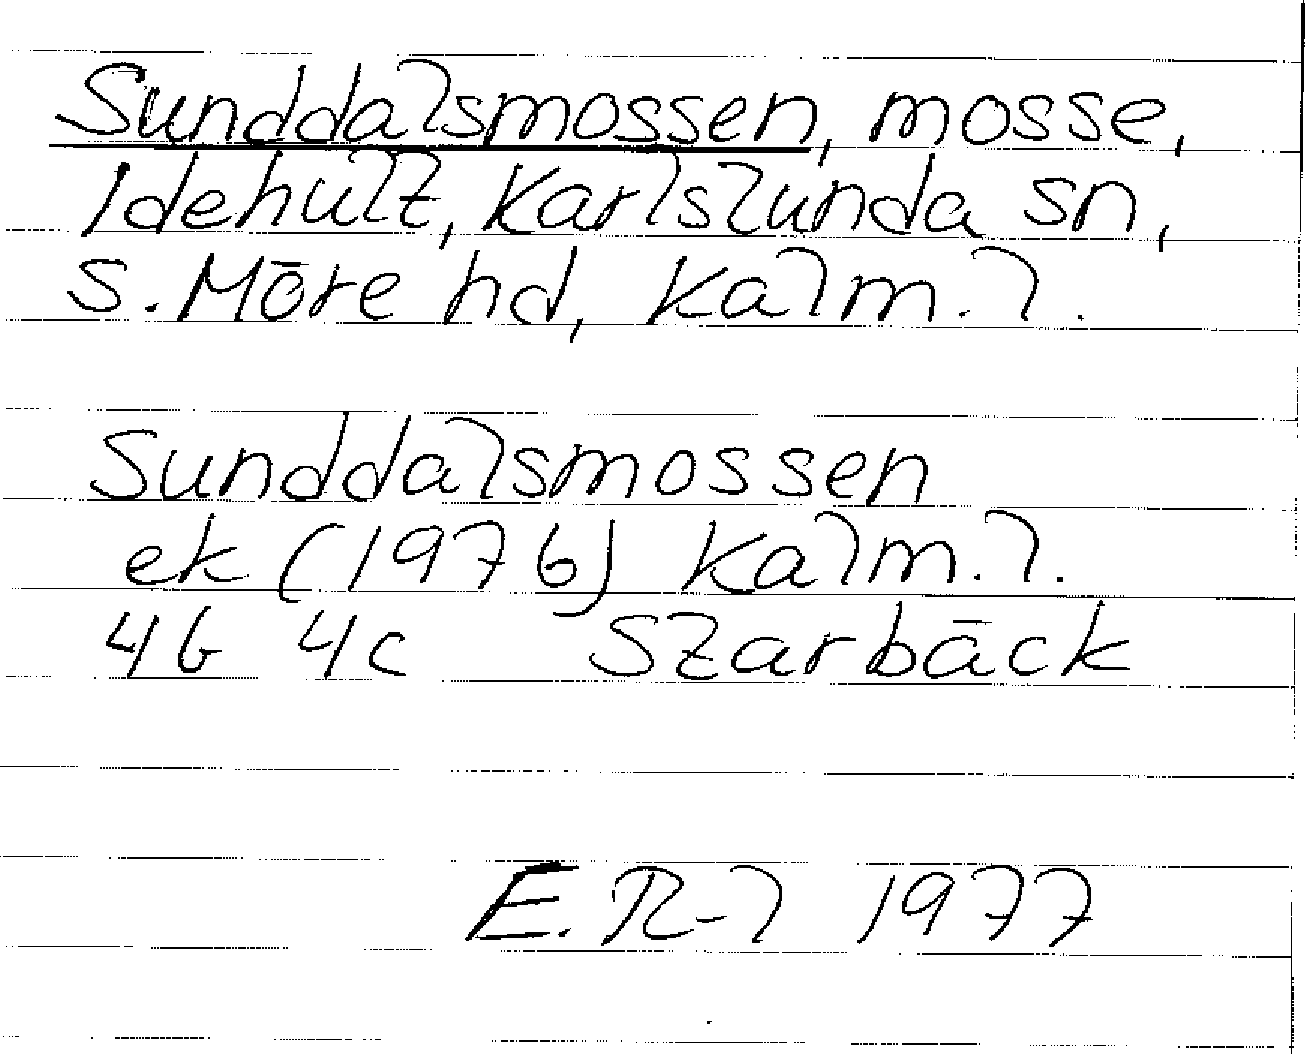 Sunddalsmossen, mosse,
Idehult, Karlslunda sn,
S. Möre hd, Kalm. l.
Sunddalsmossen
ek (1976) Kalm. l.
4G 4c Szarbäck
E. R-l 1977